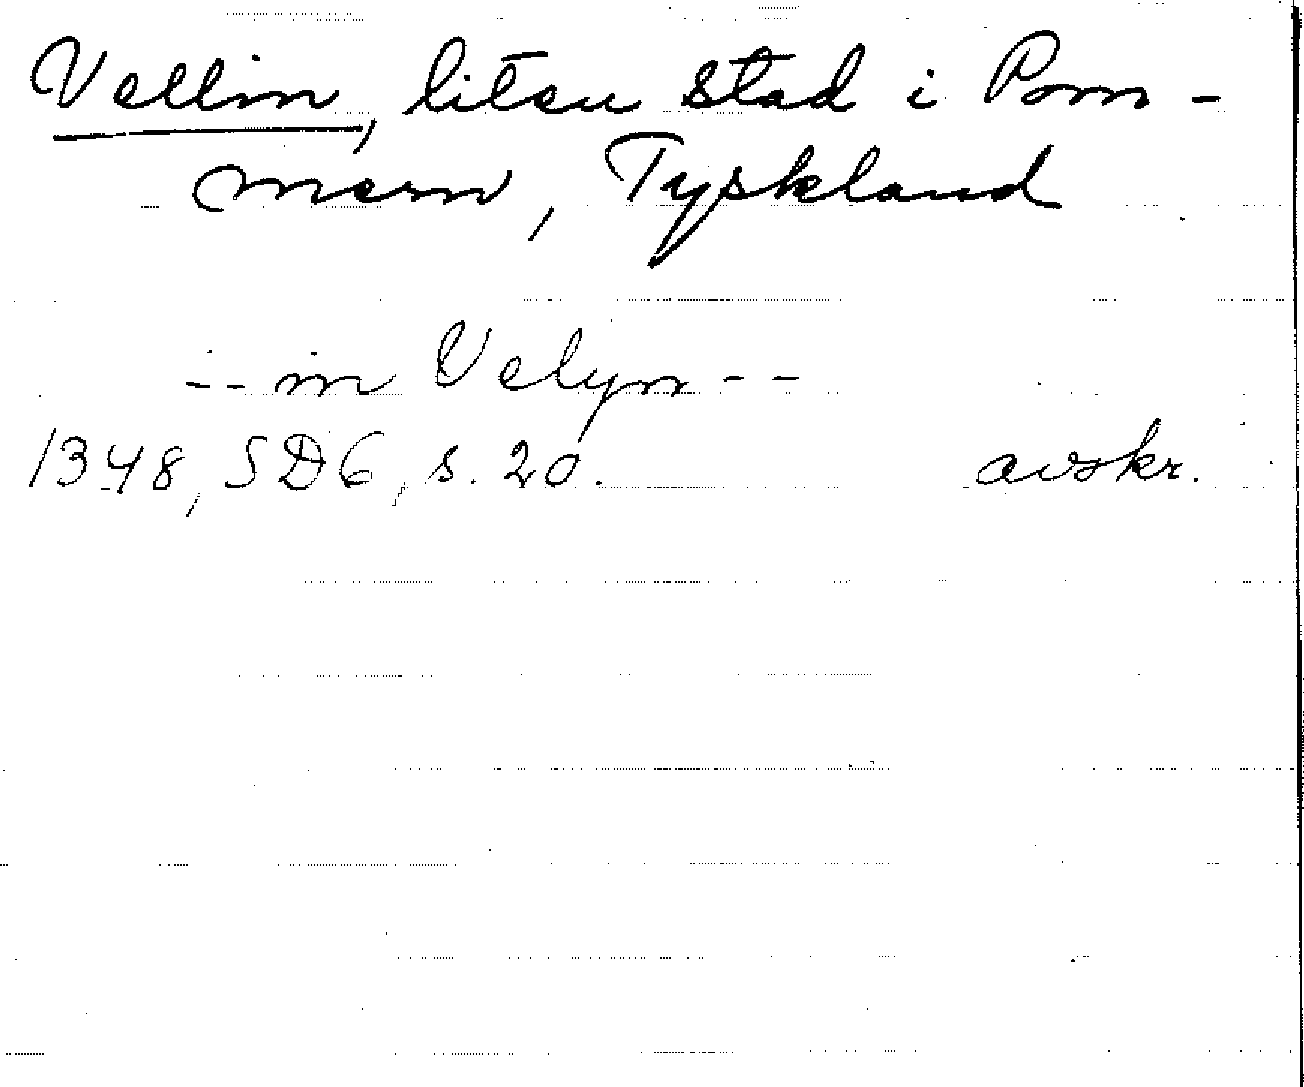 Vellin, liten stad i Pom-
mern, Tyskland
-- in Velyn --
1348, SD6, s. 20. avskr.